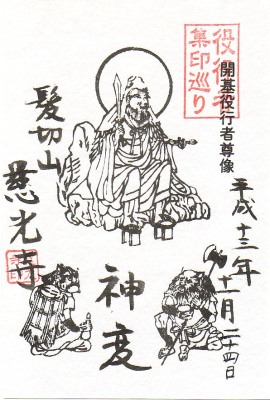 役行者
集印巡り
開基役行者尊像
平成十三年
十一月二十四日
神変
髪切山
慈光寺